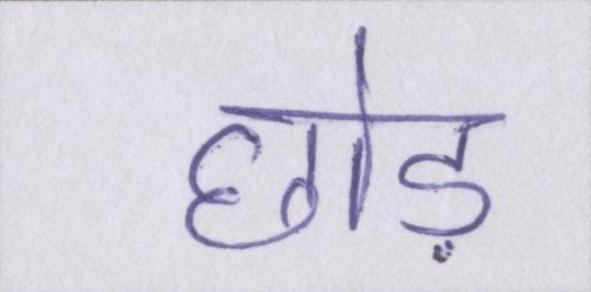 छोड़